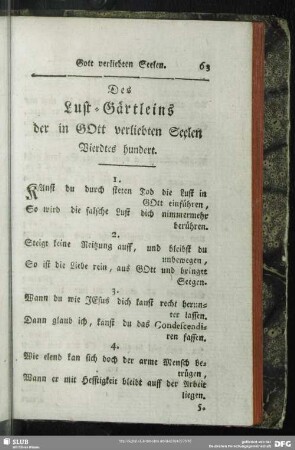 Gott verliebten Seelen. 63
Des
Lust-Gärtleins
der in GOtt verliebten Seelen
Vierdtes hundert.
1.
Kanst du durch steten Tod die Lust in
GOtt einführen,
So wird die falsche Lust dich nimmermehr
berühren.
2.
Steigt keine Reitzung auff, und bleibst du
unbewegen,
So ist die Liebe rein, aus GOtt und bringet
Seegen.
3.
Wann du wie JEsus dich kanst recht herun-
ter lassen,
Dann glaub ich, kanst du das Condescendi-
ren fassen.
4.
Wie elend kan sich doch der arme Mensch be-
trügen,
Wann er mit Hefftigkeit bleibt auff der Arbeit
liegen.
5.
SLUB
DFG